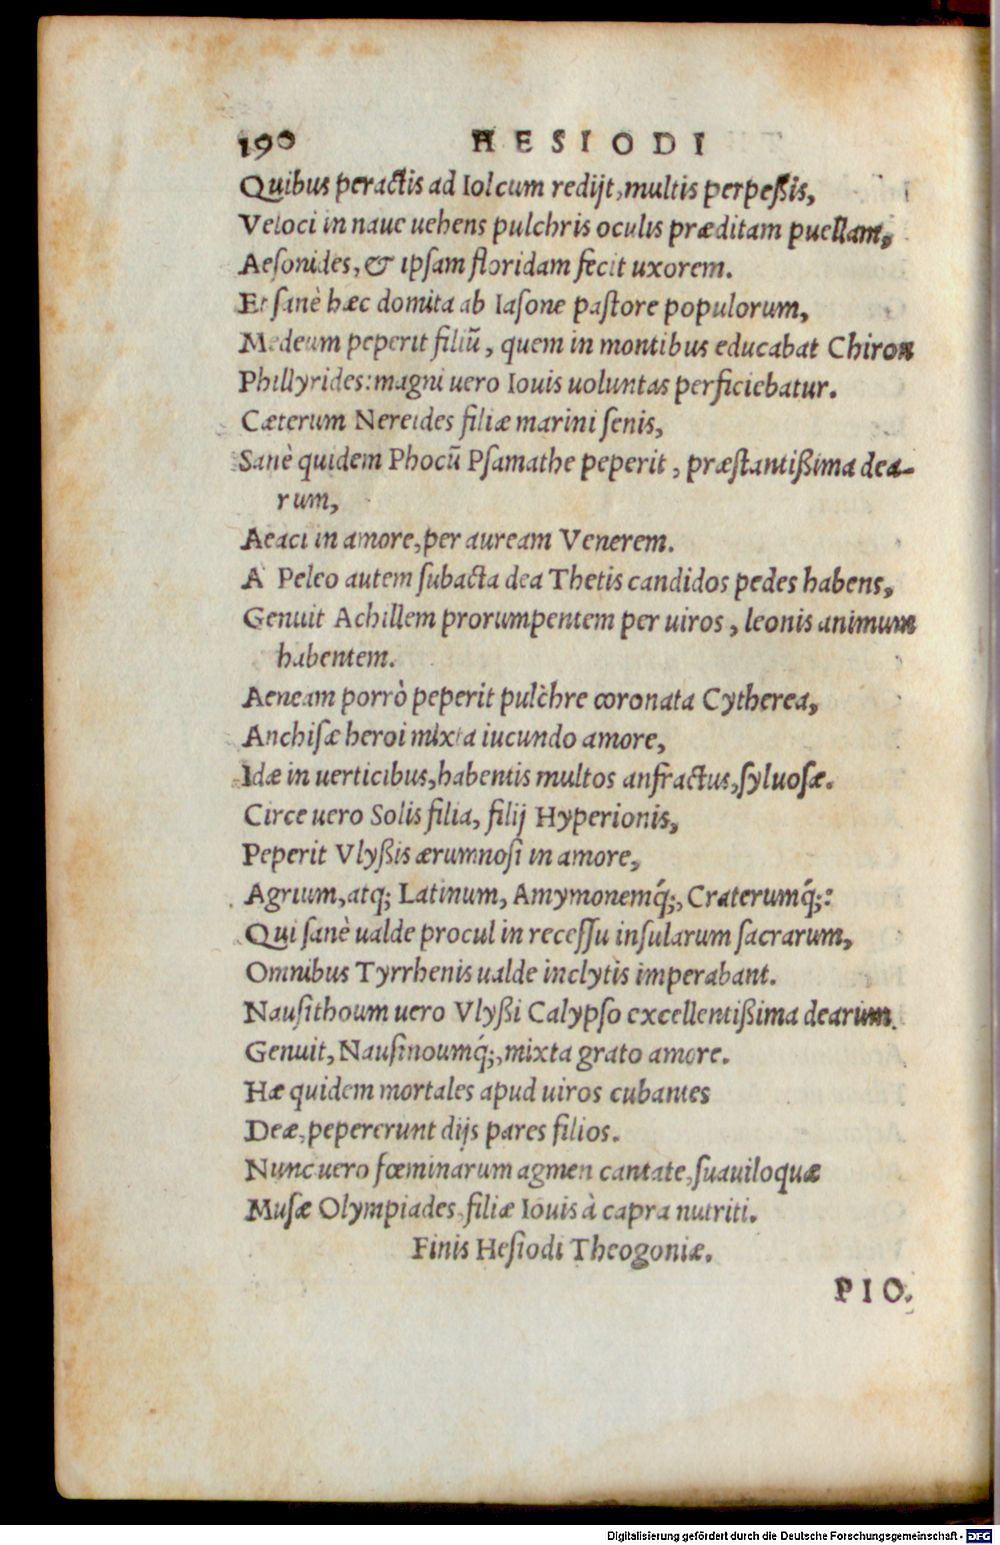 190 HESIODI
Quibus peractis ad Iolcum redijt, multis perpeßis,
Veloci in naue uehens pulchris oculis præditam puellam,
Aesonides, & ipsam floridam fecit uxorem.
Et sanè hæc domita ab Iasone pastore populorum,
Medeum peperit filiũ, quem in montibus educabat Chiron
Phillyrides: magni uero Iouis uoluntas perficiebatur.
Cæterum Nereides filiæ marini senis,
Sanè quidem Phocũ Psamathe peperit, præstantißima dea-
rum,
Aeaci in amore, per auream Venerem.
A Peleo autem subacta dea Thetis candidos pedes habens,
Genuit Achillem prorumpentem per uiros, leonis animum
habentem.
Aeneam porrò peperit pulchre coronata Cytherea,
Anchisæ heroi mixta iucundo amore,
Idæ in uerticibus, habentis multos anfractus, syluosæ.
Circe uero Solis filia, filij Hyperionis,
Peperit Vlyßis ærumnosi in amore,
Agrium, atq; Latinum, Amymonemq́;, Craterumq́;:
Qui sanè ualde procul in recessu insularum sacrarum,
Omnibus Tyrrhenis ualde inclytis imperabant.
Nausithoum uero Vlyßi Calypso excellentißima dearum
Genuit, Nausinoumq́;, mixta grato amore.
Hæ quidem mortales apud uiros cubantes
Deæ, pepererunt dijs pares filios.
Nunc uero fœminarum agmen cantate, suauiloquæ
Musæ Olympiades, filiæ Iouis à capra nutriti.
Finis Hesiodi Theogoniæ.
PIO.
Digitalisierung gefördert durch die Deutsche Forschungsgemeinschaft - DFG